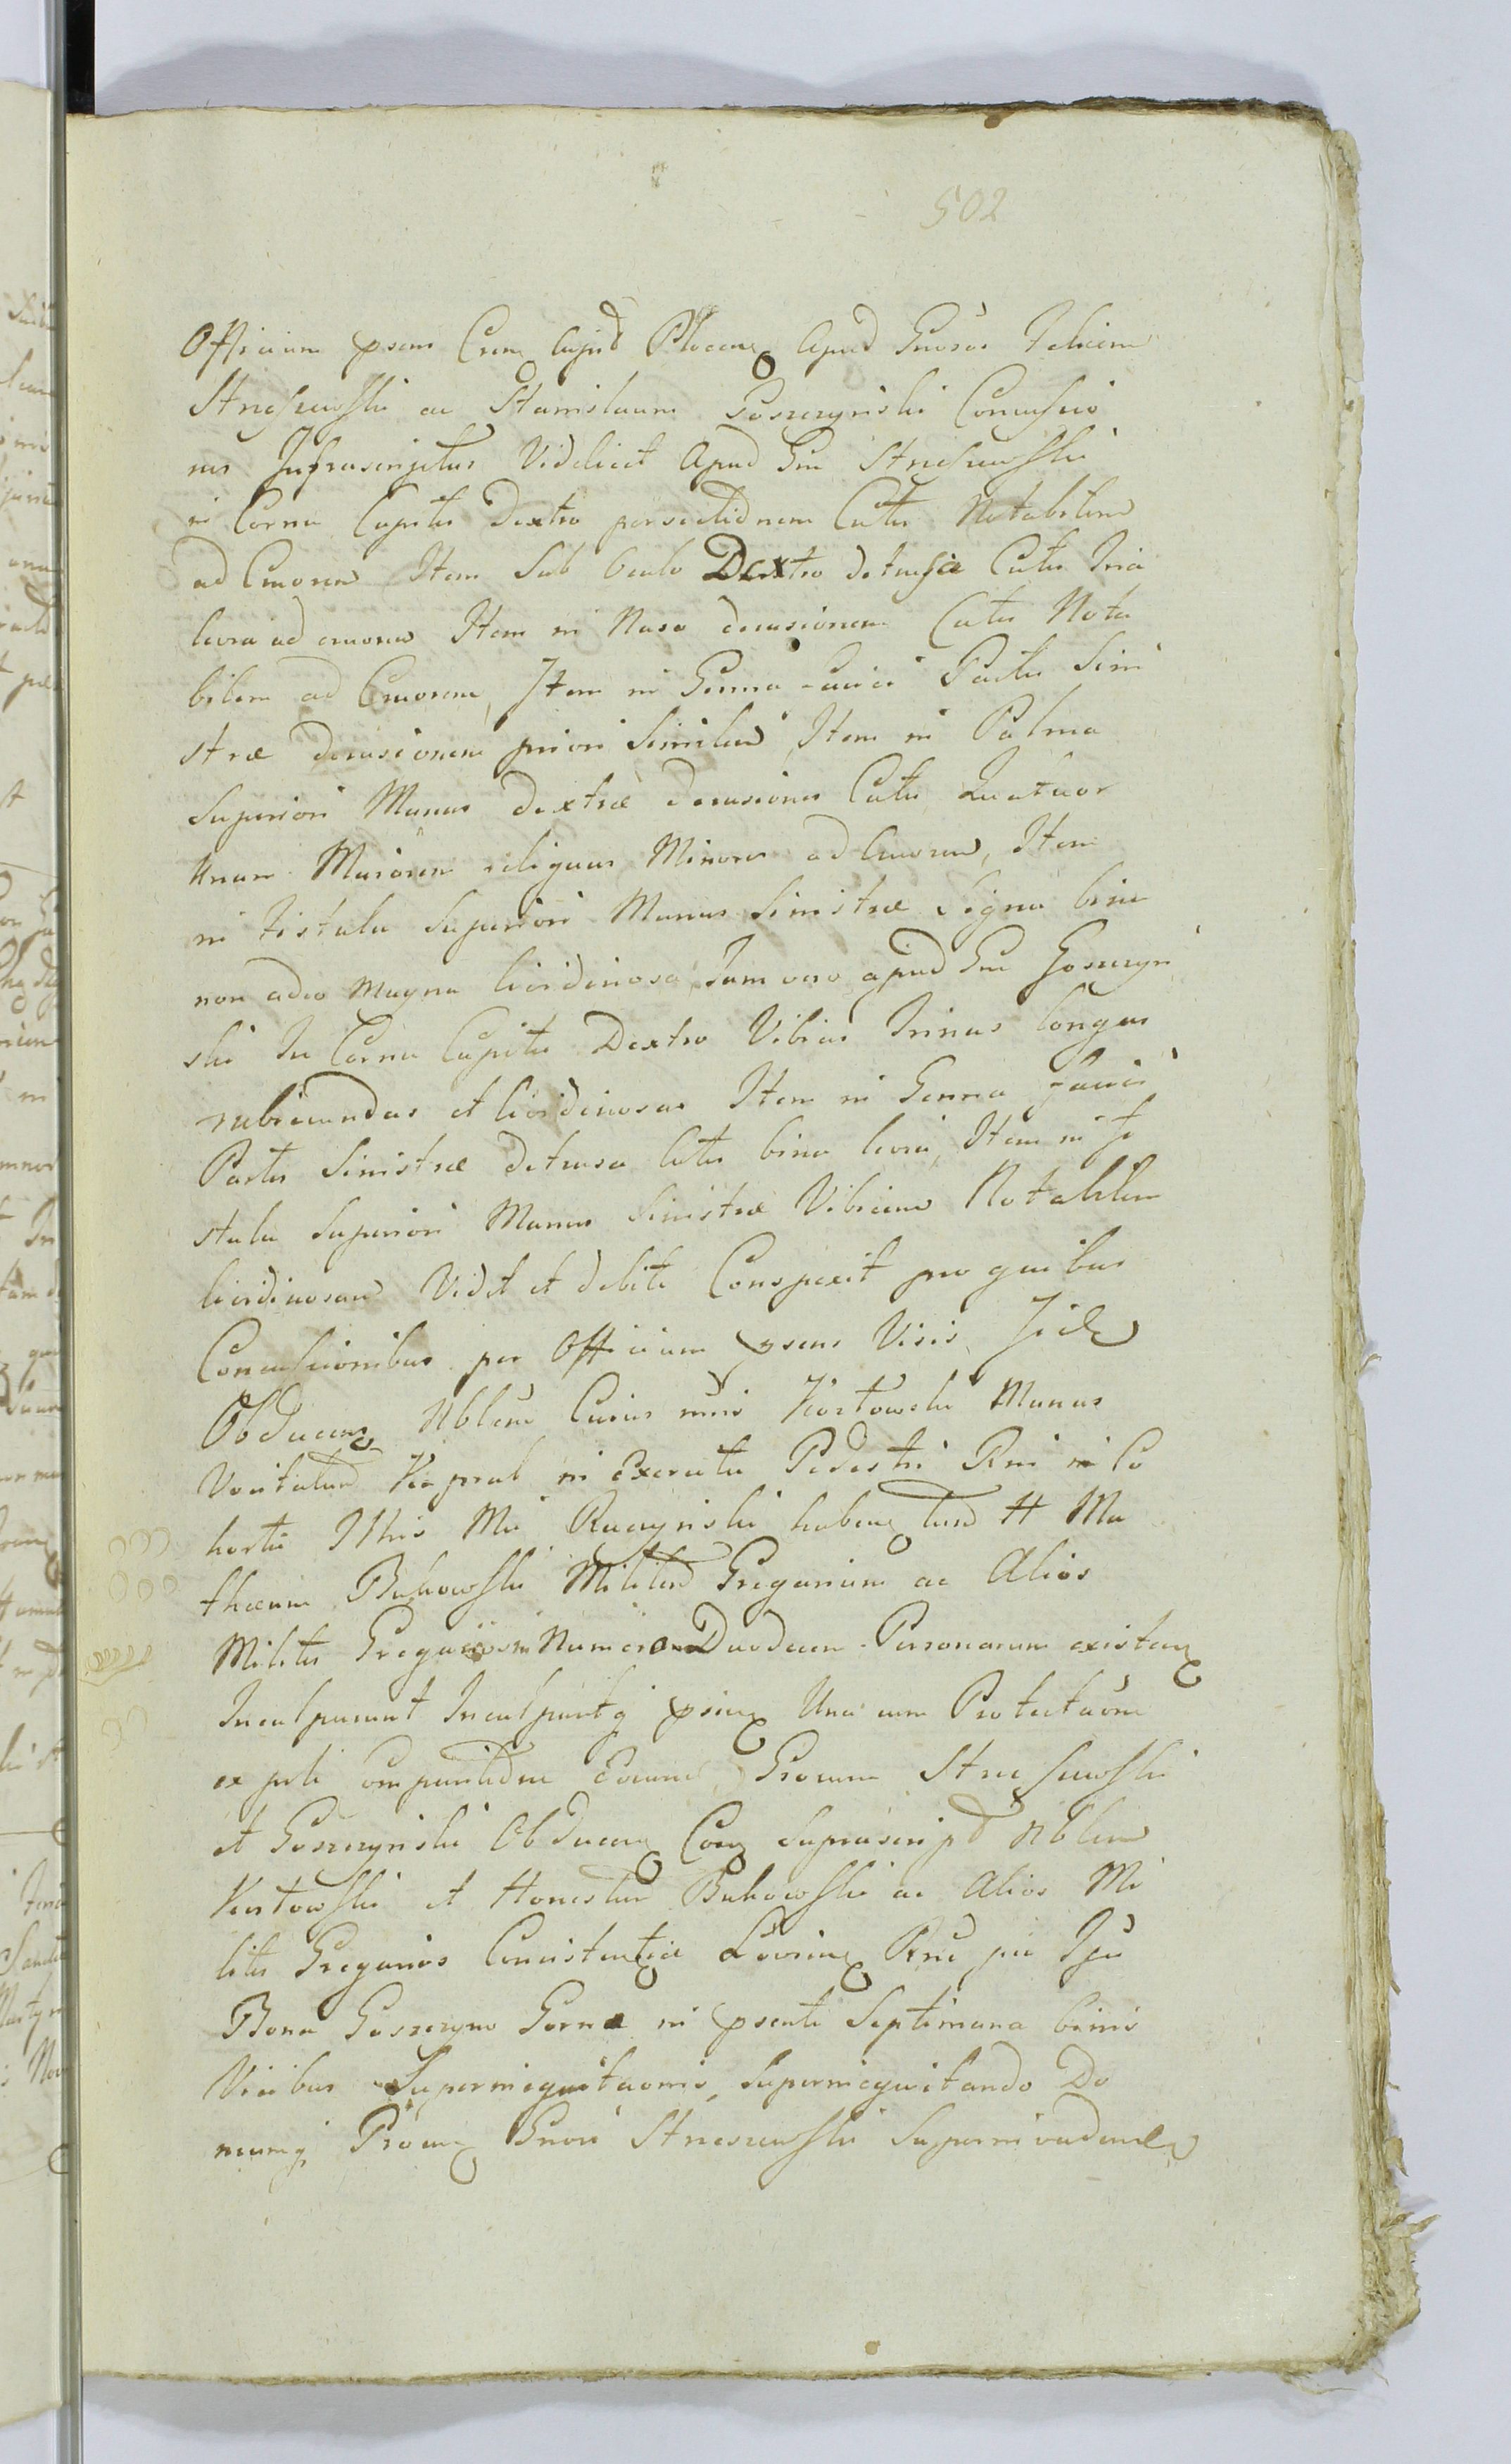 502
Officium psens Crense Capitle Plocen Apud Gnosos Felicem
Streszewski ac Stanislaum Goszczynski Concussio
nes Infrascriptas Videlicet Apud Gm Streszewski
in Cornu Capitis Dextro percustionem Cutis Notabilem
ad Cruorem Item Sub Oculo Dextro detrusa Cutis Tria
levia ad cruorem Item in Naso derasionem Cutis Nota
bilem ad Cruorem, Item in Genna faciei Partis Sini
stræ derasionem priori Similem, Item in Palma
Superiori Manus dextræ derasiones Cutis Quatuor
Unam Maiorem reliquas Minores ad Cruorem, Item
in fistula Superiori Manus Sinistræ Signa bina
non adeo magna lividinosa, Jam vero apud Gm Goszczyn
ski In Cornu Capitis Dextro Vibices Trinas longas
rubicundas et lividinosas Item in Genna faciei
Partis Sinistræ detrusa Cutis bina levia, Item in fi
stula Superiori Manus Sinistræ Vibicem Notabilem
lividinosam Vidit et debite Conspexit pro quibus
Concussionibus per Officium psens Visis
Obducen Nblem Cuius nnis Kostowski Munus
Vocitatum Kapral in Exercitu Pedestri Rni in Co
horte Mi Raczynski haben tum H Ma
thæum Bukowski Militem Gregarium ac Alios
Milites Gregarios in Numero Duodecim Personarum existen
Inculparunt psien Una cum
Eorum Grorum Streszewski
et Goszczynski Obducen Coram Suprascript Nblem
Kostowski et Honestum Bukowski ac Alios Mi
lites Gregarios Consistentiæ Lovicien Rni per
Bona Goszczyno Gorne in psenti Septimana binis
Vicibus Superinequitaonis, Superinequitando Do
mumq Gnosi Streszewski Superinvadendo